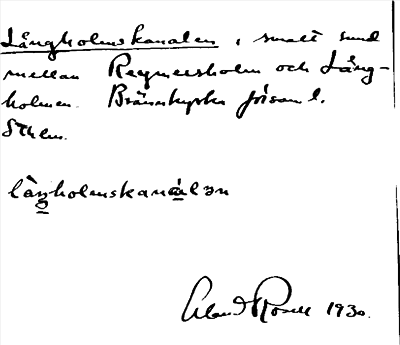 Långholmskanalen, smalt sund
mellan Reymersholm och Lång-
holmen. Brännkyrka församl.
Sthlm.
långholmskanálən
1930.